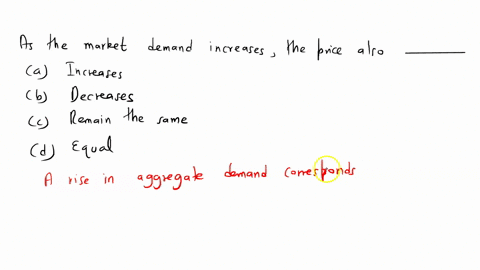 As the market demand increases, the price also ______
(a) Increases
(b) Decreases
(c) Remain the same
(d) Equal
A rise in aggregate demand corresponds